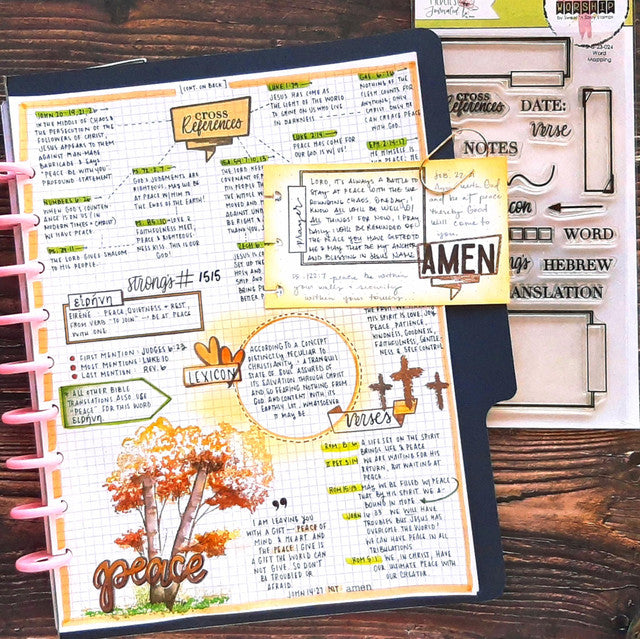 [CONT. ON BACK]
CROSS
References
JOHN 20:19, 21, 26
IN THE MIDDLE OF CHAOS &
THE PERSECUTION OF THE
FOLLOWERS OF CHRIST,
JESUS APPEARS TO THEM
AGAINST MAN-MADE
BARRICADE & SAYS
"PEACE BE WITH YOU"
PROFOUND STATEMENT.
NUMBERS 6:26
WHEN GOD'S COUNTENANCE
WE HAVE PEACE.
PS. 29:11
THE LORD GIVES SHALOM
TO HIS PEOPLE.
PS. 72:3, 7
GOD'S JUDGEMENTS ARE
RIGHTEOUS. MAY WE BE
AT PEACE WITHIN TO
THE ENDS OF THE EARTH.
PS. 85:10 - LOVE &
FAITHFULNESS MEET,
PEACE & RIGHTEOUS-
NESS KISS. THIS IS OUR
GOD!
LUKE 1:79
JESUS HAS COME AS
THE LIGHT OF THE WORLD
TO SHINE ON US WHO LIVE
IN DARKNESS
LUKE 2:14
PEACE HAS COME FOR
US. GOD IS W/ US!
GAL 6:16
NOTHING OF THE
FLESH COUNTS FOR
ANYTHING, ONLY
CHRIST. ONLY HE
CAN CREATE PEACE
WITH GOD.
EPH 2:14-17
HE HIMSELF IS
OUR PEACE; HE
ISA 54:7, 10, 13
prayer
LORD, IT'S ALWAYS A BATTLE TO
STAY AT PEACE WITH THE SUR-
ROUNDING CHAOS. ONE DAY, I
KNOW ALL WILL BE WELL W/
ALL THINGS! FOR NOW, I PRAY
DAILY I WILL BE REMINDED OF
THE PEACE YOU HAVE GIFTED TO
ME & MAY THAT BE MY ANCHOR
AND BLESSING IN JESUS NAME
JOB. 22:21
Agree with God
and be at peace
thereby Good
will come to
you.
AMEN
PS. 122:7 peace be within
your walls & security
within your towers.
strongs # 1515
εἰρήνη
EIRENE: PEACE, QUIETNESS & REST,
FROM VERB "TO JOIN" → BE AT PEACE
WITH ONE
FIRST MENTION: JUDGES 6:23
MOST MENTION: LUKE 10
LAST MENTION: REV. 6
* ALL OTHER BIBLE
TRANSLATIONS ALSO USE
"PEACE" FOR THIS WORD
εἰρήνη.
LEXICON
ACCORDING TO A CONCEPT
DISTINCTLY PECULIAR TO
CHRISTIANITY: A TRANQUIL
STATE OF SOUL ASSURED OF
ITS SALVATION THROUGH CHRIST
AND SO FEARING NOTHING FROM
GOD AND CONTENT WITH ITS
EARTHLY LOT, WHATSOEVER
IT MAY BE.
HIS SPIRIT IS LOVE, JOY,
PEACE, PATIENCE,
KINDNESS, GOODNESS,
FAITHFULNESS, GENTLE-
NESS & SELF CONTROL
verses
ROM. 8:6 A LIFE SET ON THE SPIRIT
BRINGS LIFE & PEACE
II PET 3:14 WE ARE WAITING FOR HIS
RETURN, BUT WAITING AT
PEACE.
ROM 15:13 MAY WE BE FILLED W/ PEACE
THAT BY HIS SPIRIT WE A-
BOUND IN HOPE
JOHN 16:33 WE WILL HAVE
TROUBLES BUT JESUS HAS
OVERCOME THE WORLD!
WE CAN HAVE PEACE IN ALL
TRIBULATIONS
ROM 5:1 WE, IN CHRIST, HAVE
OUR ULTIMATE PEACE WITH
OUR CREATOR.
"
I AM LEAVING YOU
WITH A GIFT — PEACE OF
MIND & HEART. AND
THE PEACE I GIVE IS
A GIFT THE WORLD CAN
NOT GIVE. SO DON'T
BE TROUBLED OR
AFRAID.
JOHN 14:27 NLT amen
peace
Journaled
WORSHIP
by Sweet 'n Sassy Stamps
23-024
Word
Mapping
CROSS
References
DATE:
Verse
NOTES
WORD
HEBREW
TRANSLATION